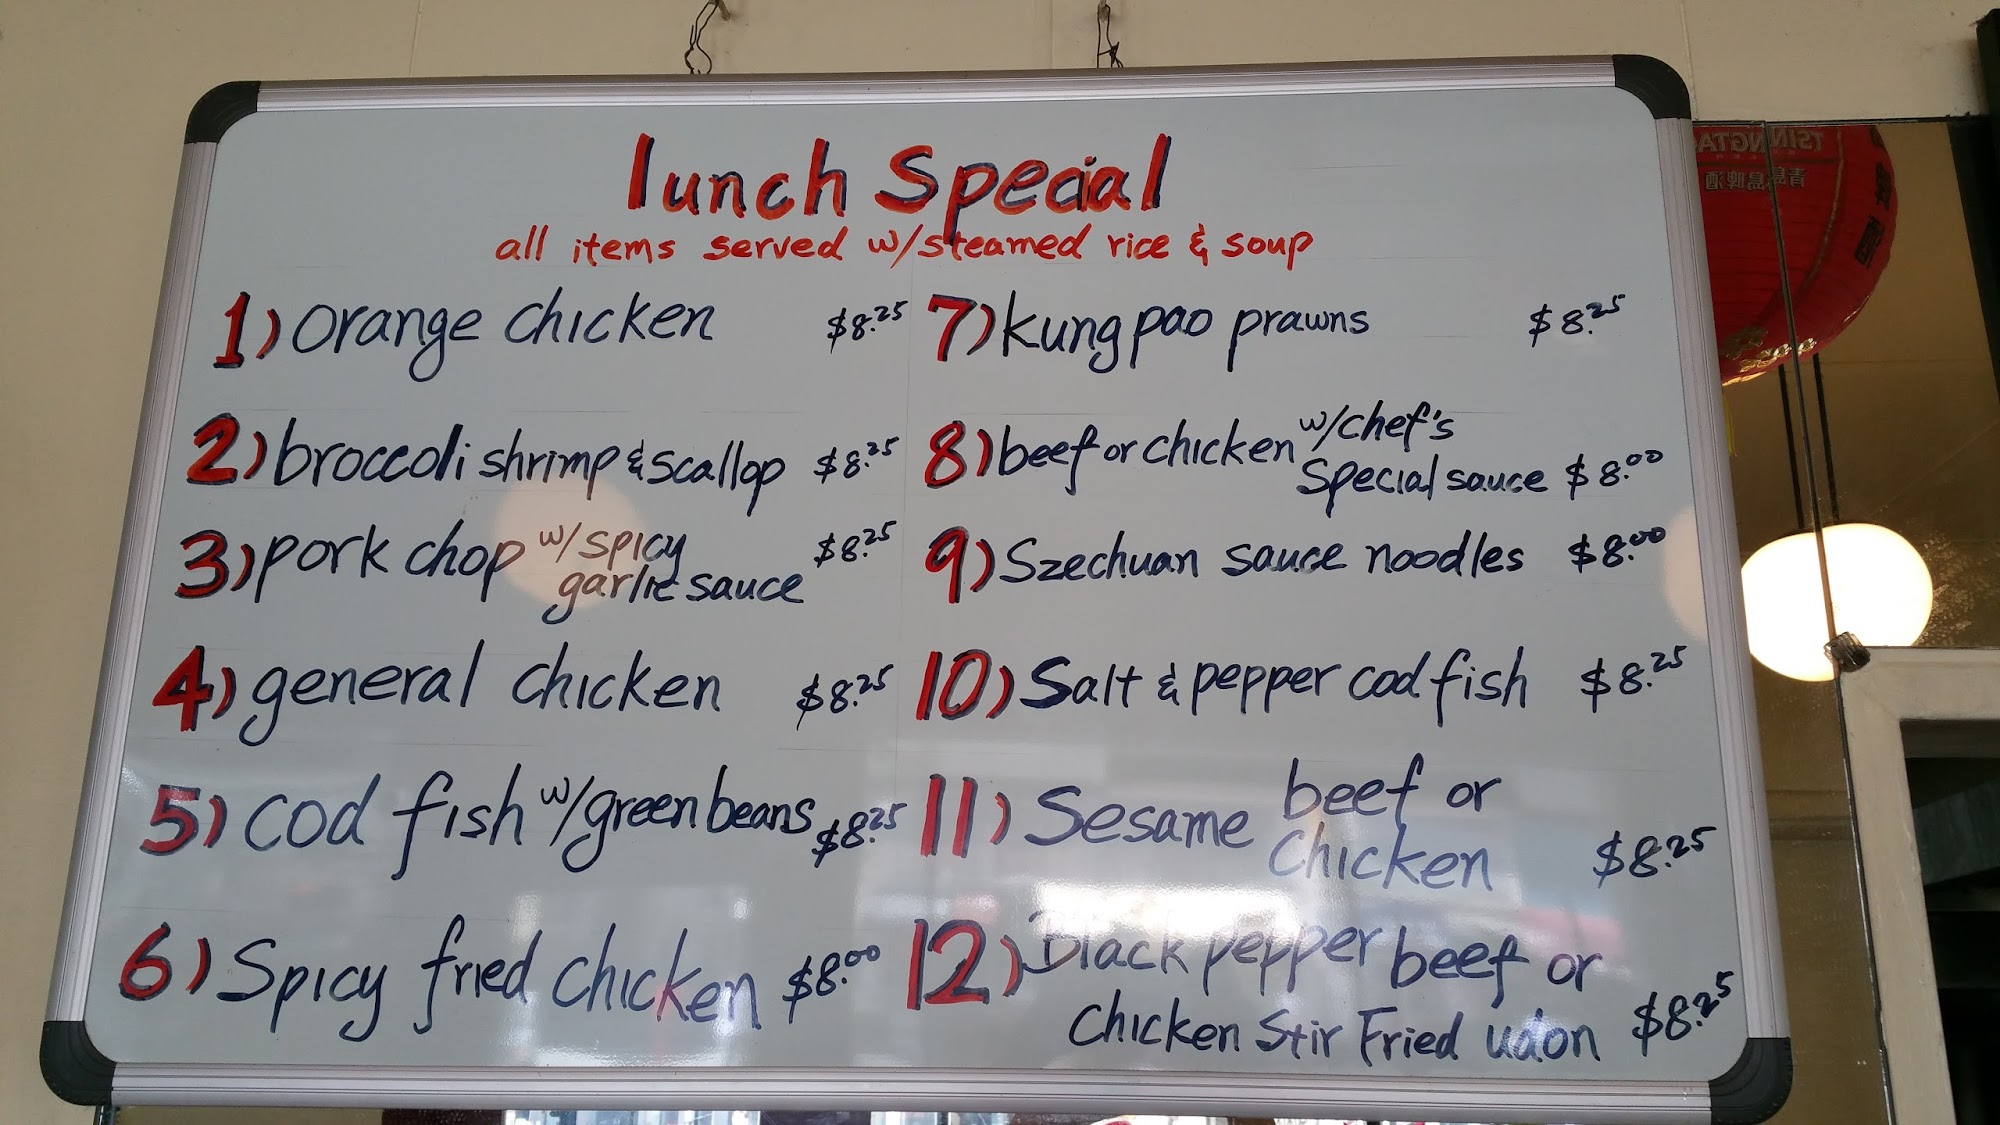 lunch Special
all items served w/steamed rice & soup
1) orange chicken $8.25
2) broccoli shrimp & scallop $8.25
3) pork chop w/spicy
garlic sauce $8.25
4) general chicken $8.25
5) Cod fish w/green beans $8.25
6) Spicy fried chicken $8.00
7) kung pao prawns $8.25
8) beef or chicken w/chef's
Special sauce $8.00
9) Szechuan sauce noodles $8.00
10) Salt & pepper cod fish $8.25
11) Sesame beef or
Chicken $8.25
12) Black pepper beef or
Chicken Stir Fried udon $8.25
TSINGTAO
青島啤酒